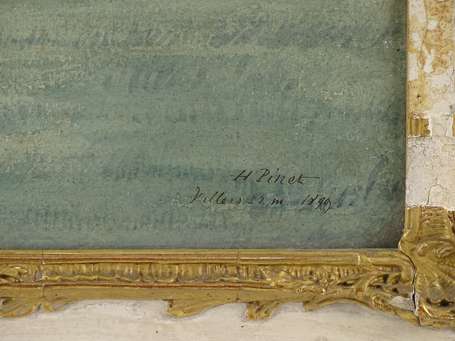 H Pinet
Villers s. m 1890